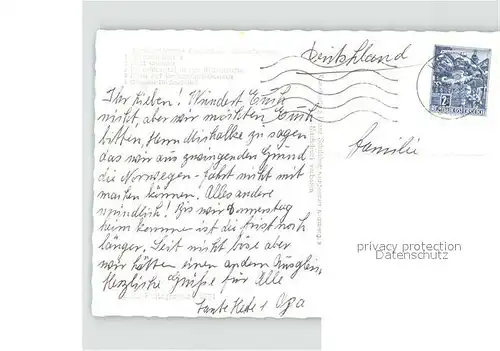 Deutschland
Ihr Lieben! Wundert Euch
nicht, aber wir möchten Euch
bitten, Herrn Mishalke zu sagen
das wir aus zwingenden Grund
die Norwegen-fahrt nicht mit
machen können. Alles andere
mündlich! Bis wir Donnerstag
heim kommen ist die frist noch
länger. Seit nicht böse aber
wir hätten einen andern Ausgleich.
Herzliche Grüße für Alle
Tante Hete & Opa
2
Familie
privacy protection
Datenschutz